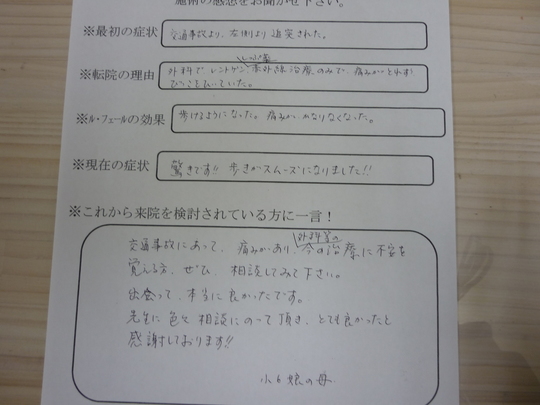 施術の感想をお聞かせ下さい。
※最初の症状
交通事故より、左側より追突された。
※転院の理由
外科で、レントゲン、赤外線治療のみで、痛みがとれず
びっこをひいていた。
※ル・フェールの効果
歩けるようになった。痛みが、かなりなくなった。
※現在の症状
驚きです!! 歩きがスムーズになりました!!
※これから来院を検討されている方に一言！
外科等の
交通事故にあって、痛みがあり、今の治療に不安を
覚える方、ぜひ、相談してみて下さい。
出会って、本当に良かったです。
先生に色々相談にのって頂き、とても良かったと
感謝しております!!
小6娘の母